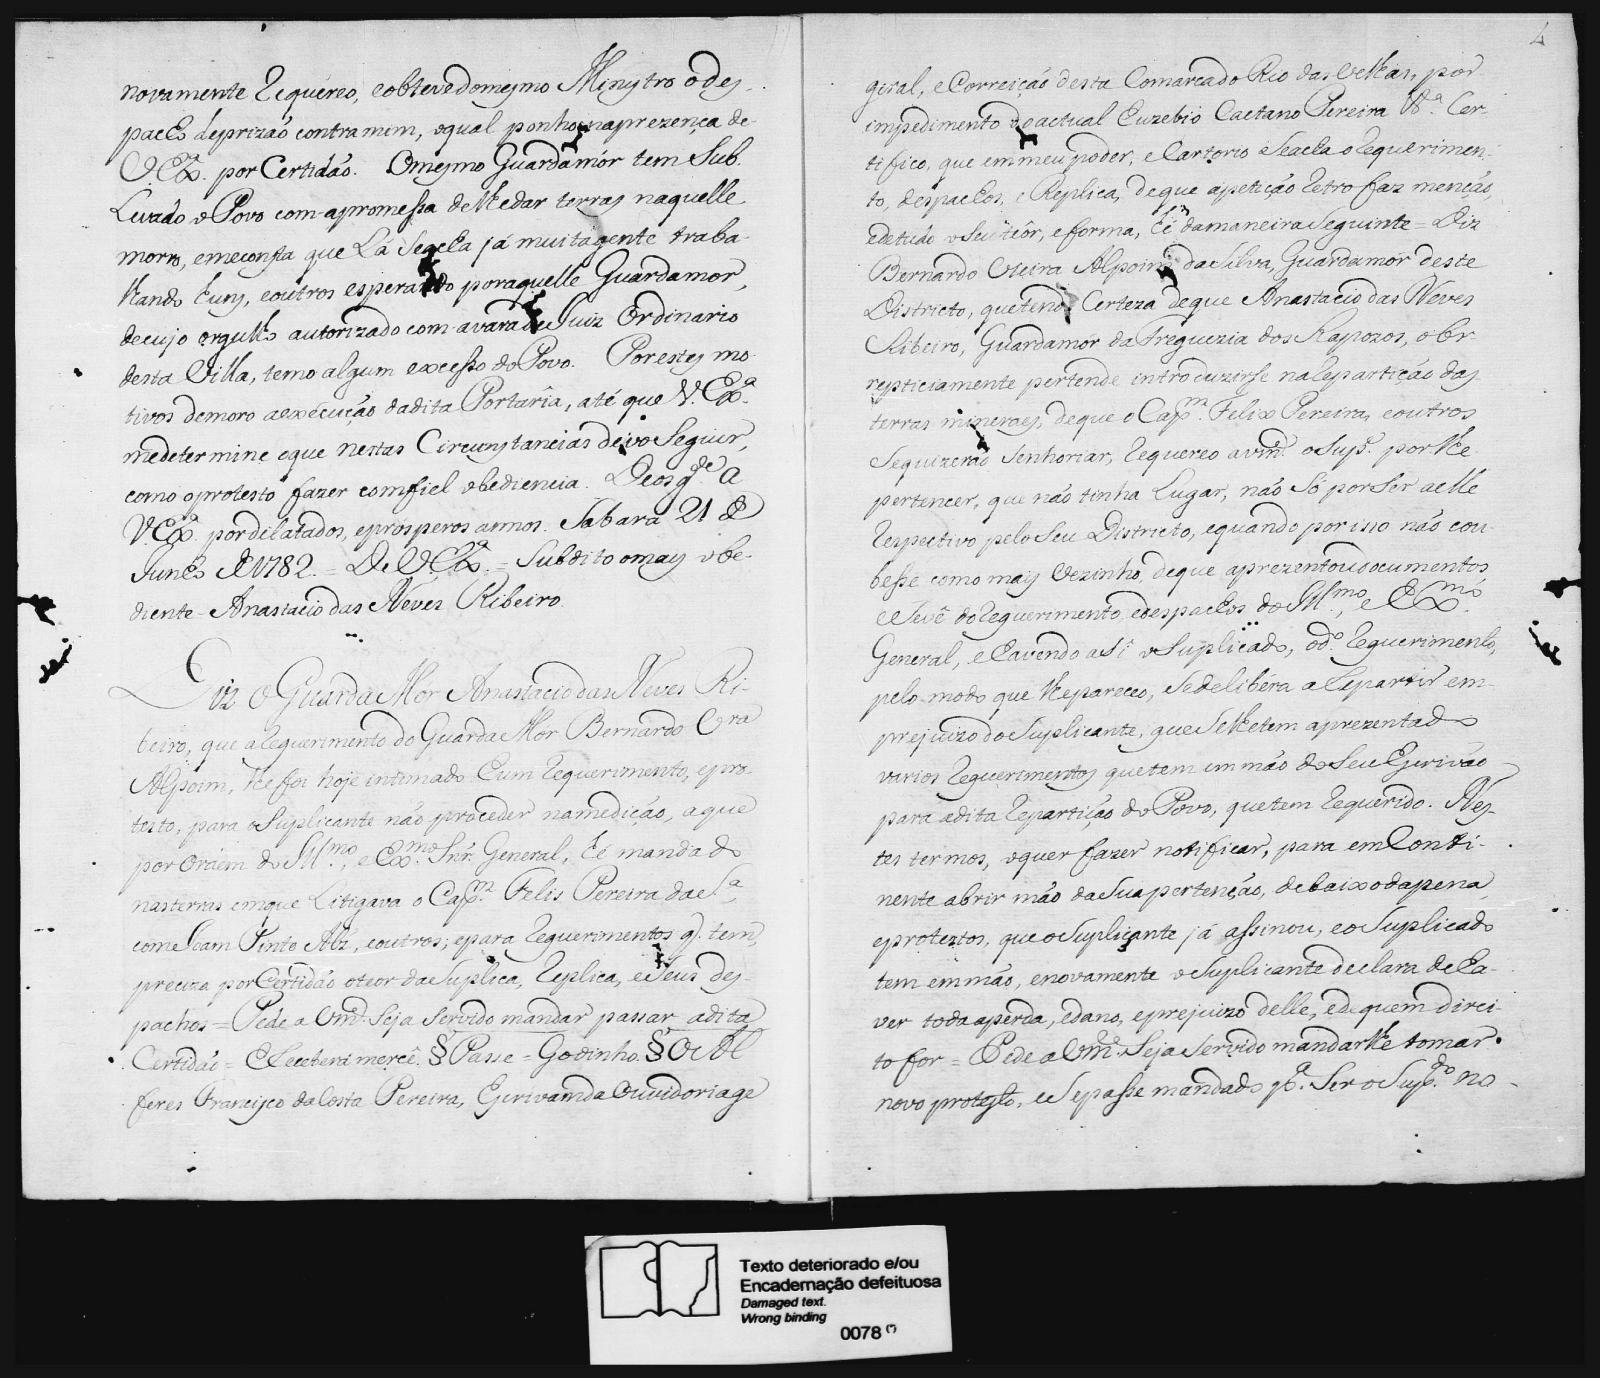 novamente Requereo, eobtevedomesmo Menistro odes-
pacho deprizaõ contramim, oqual ponho naprezença de-
V.Exª. por Certidaõ. Omesmo Guardamór tem Sub-
Levado o Povo com apromessa delhedar terras naquelle
morro, emeconsta que Lá Seacha já muitagente traba-
lhando huns, eoutros esperando poraquelle Guardamor,
decujo orgulho autorizado com avara de Juiz Ordinario
desta Villa, temo algum excesso do Povo. Porestes mo-
tivos demoro aexecuçaõ dadita Portaria, até que V.Exª.
medetermine oque nestas Circunstancias devo Seguir,
como oprotesto fazer comfiel obediencia. Deos g.de a
V.Exª. pordilatados, eprosperos annos. Sabara 21 de
Junho de 1782. = De V.Exª. = Subdito omais obe-
diente - Anastacio das Neves Ribeiro.
Diz o Guarda Mor Anastacio das Neves Ri-
beiro, que aRequerimento do Guarda Mor Bernardo Vra
Alpoim, lhe foi hoje intimado hum Requerimento, epro-
testo, para oSuplicante naõ proceder namediçaõ, aque
por Ordem do Ill.mo, e Ex.mo Snr. General, hé mandado
nasterras emque Litigava o Cap.m Felis Pereira da Sª
come Joam Pinto Alz, eoutros; epara Requerimentos q. tem,
preciza por Certidaõ oteor daSuplica, Replica, eSeus des-
pachos = Pede a Vm.ce Seja Servido mandar passar adita
Certidaõ = E Receberá mercê. § Passe = Godinho. § O Al
feres Francisco da Costa Pereira, Escrivam da Ouvidoria ge
4
geral, e Correiçaõ desta Comarca do Rio das Velhas, por
impedimento do actual Euzebio Caetano Pereira &ª. Cer-
tifico, que emmeu poder, e Cartorio Seacha o Requerimen-
to, despachos, e Replica, deque apetiçaõ retro faz mençaõ,
edetudo oSeu teôr, eforma, hé damaneira Seguinte = Diz
Bernardo Vieira Alpoim da Silva, Guardamór deste
Districto, quetendo Certeza deque Anastacio das Neves
Ribeiro, Guardamór da Freguezia dos Rapozos, obr-
repticiamente pertende introduzirse naRepartiçaõ das
terras mineraes, deque o Cap.m Felix Pereira, eoutros
Sequizeraõ Senhoriar, Requereo avm.ce oSup.e por lhe
pertencer, que naõ tinha Lugar, naõ Só porSer aelle
Respectivo pelo Seu Districto, equando porisso naõ cou-
besse como mais Vezinho, deque aprezentou documentos
eSevê do Requerimento, edespachos do Ill.mo, e Ex.mo
General, e havendo aSi oSuplicado, od.o Requerimento,
pelo modo que lhepareceo, Sedelibéra aRepartir em-
prejuizo do Suplicante, que Selhetem aprezentado
varios Requerimentos quetem em maõ do Seu Escrivaõ
para adita Repartiçaõ do Povo, quetem Requerido. Nes-
tes termos, oquer fazer notificar, para em Conti-
nente abrir maõ daSua pertençaõ, debaixodapena,
eprotestos, queoSuplicante já assinou, eoSuplicado
tem emmaõ, enovamente oSuplicante declara deha-
ver toda aperda, edano, eprejuizo delle, edequem direi-
to for = Pede a Vm.ce Seja Servido mandarlhe tomar
novo protesto, eSepasse mandado pª. Ser oSup.do no-
Texto deteriorado e/ou
Encadernação defeituosa
Damaged text.
Wrong binding
0078 (*)